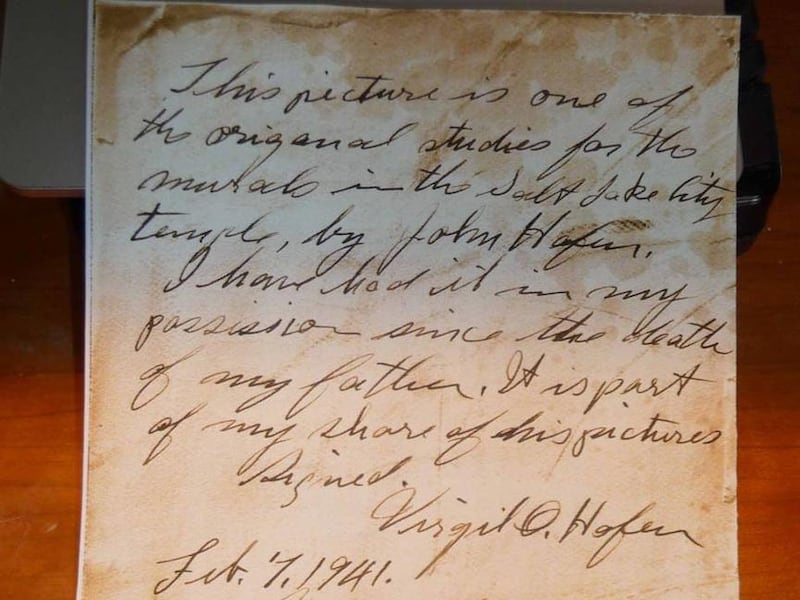 This picture is one of
the origanal studies for the
murals in the Salt Lake City
temple, by John Hafen.
I have had it in my
possission since the death
of my father. It is part
of my share of his pictures
Signed.
Virgil O. Hafen
Feb. 7. 1941.